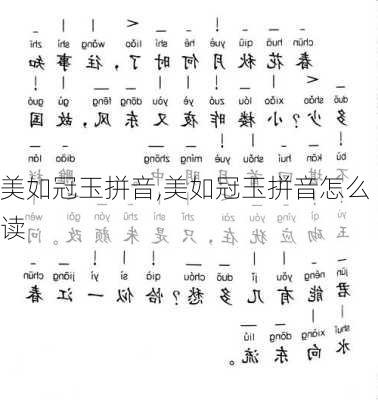 chūn huā qiū yuè hé shí liǎo wǎng shì zhī
春花秋月何时了，往事知
duō shǎo xiǎo lóu zuó yè yòu dōng fēng gù guó
多少？小楼昨夜又东风，故国
bù kān huí shǒu yuè míng zhōng diāo lán
不堪回首月明中。
美如冠玉拼音,美如冠玉拼音怎么
读
玉砌应犹在，只是朱颜改。问
jūn néng yǒu jǐ duō chóu qià sì yì jiāng chūn
君能有几多愁？恰似一江春
shuǐ xiàng dōng liú
水向东流。